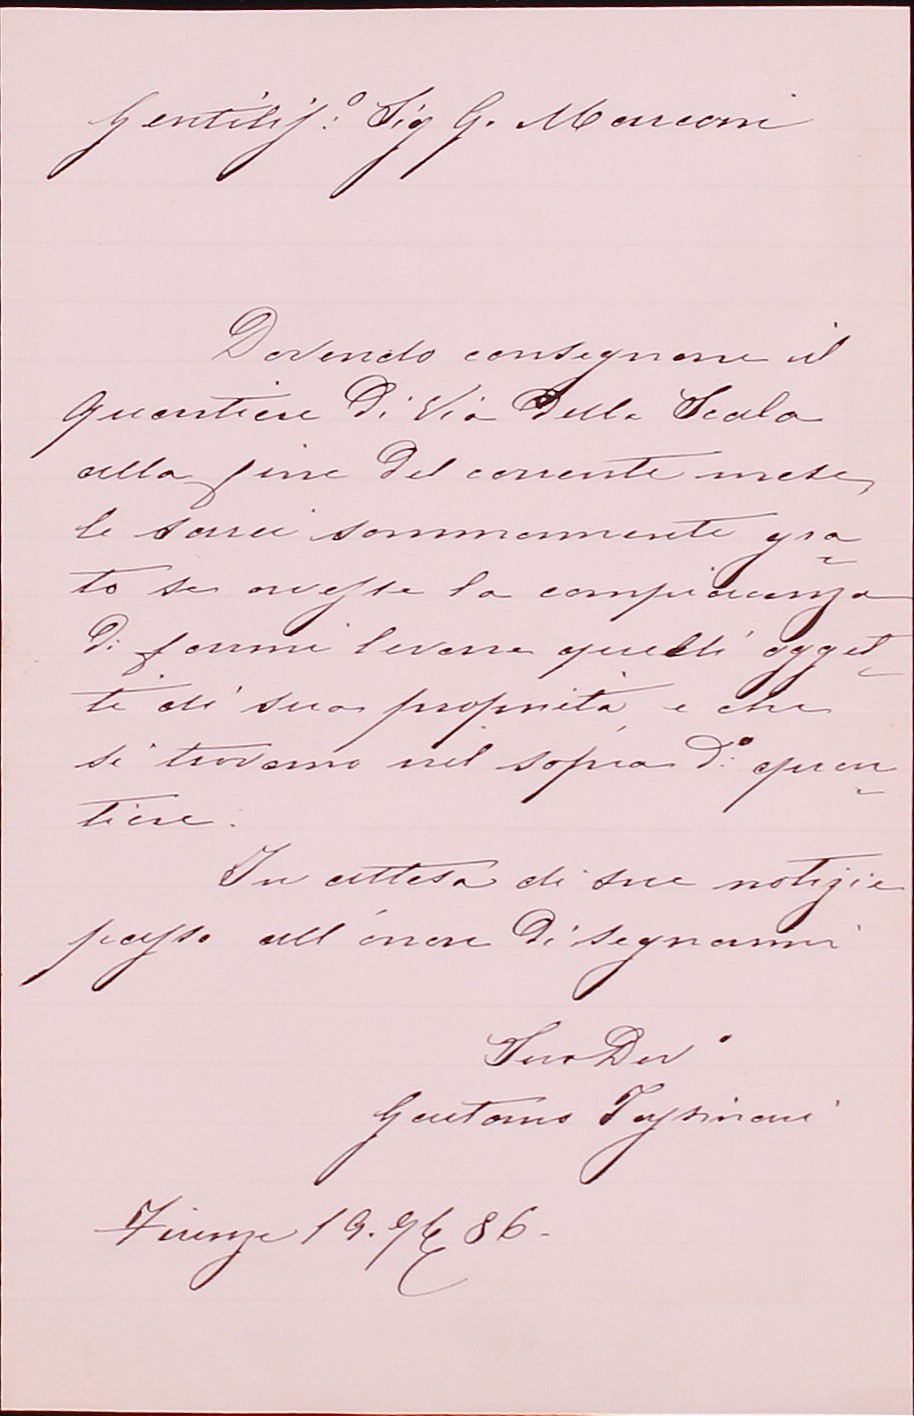 Gentiliss.º Sig G. Marconi
Dovendo consegnare il
quartiere di Via della Scala
alla fine del corrente mese,
le sarei sommamente gra-
to se avesse la compiacenza
di farmi levare quelli ogget-
ti di sua proprietà, e che
si trovano nel sopra d.º quar-
tiere.
In attesa di sue notizie
passo all'onore di segnarmi
Suo Dev º
Gaetano
Firenze 19. 9bre 86-